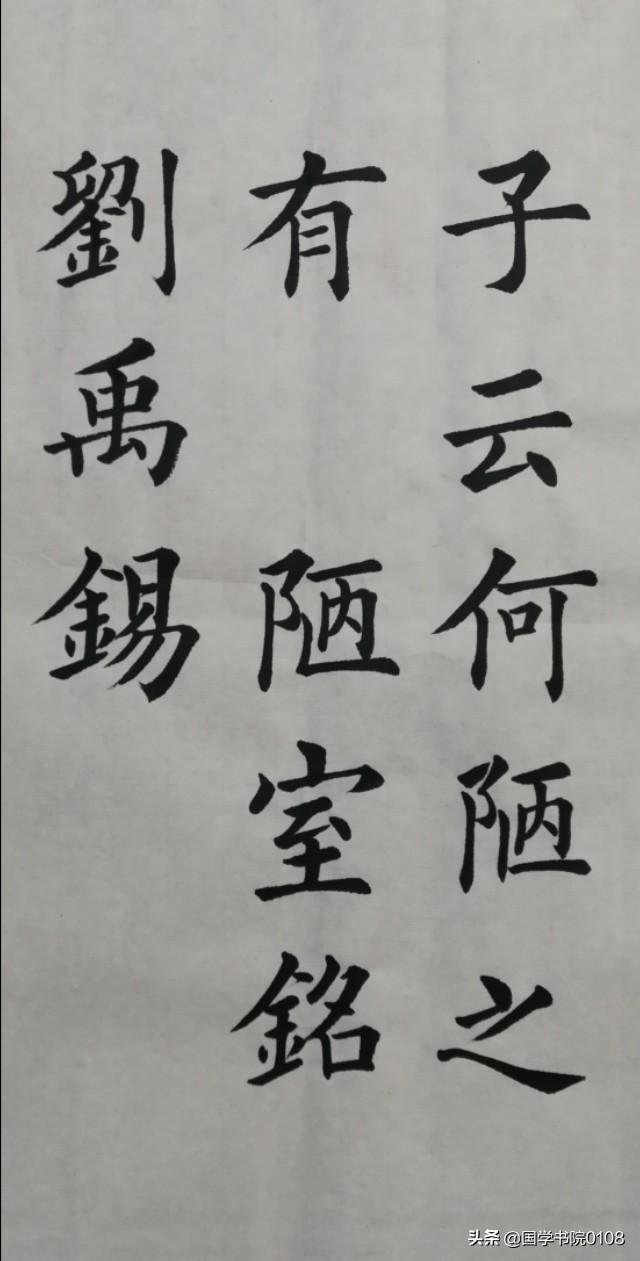 子云何陋之
有 陋室銘
劉禹錫
头条 @国学书院0108